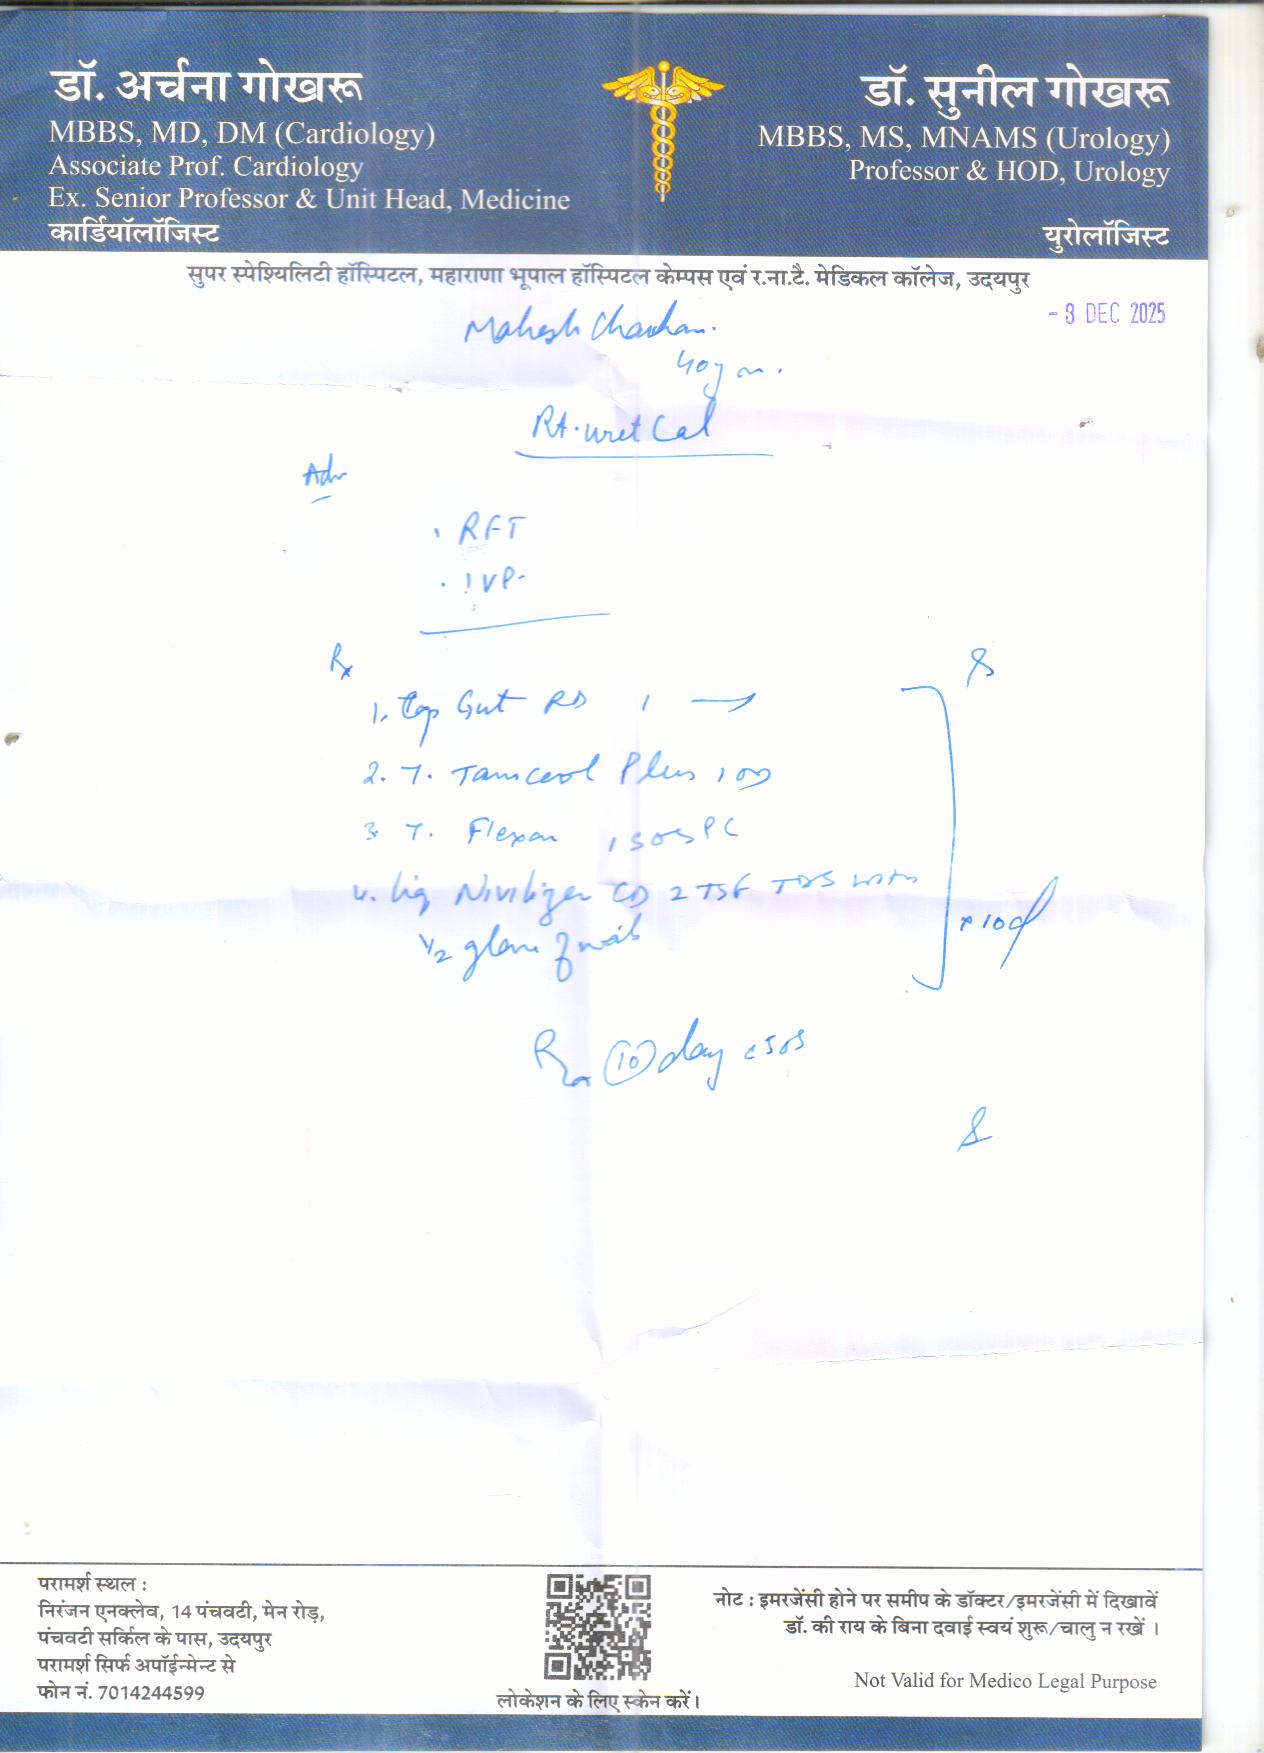 डॉ. अर्चना गोखरू
MBBS, MD, DM (Cardiology)
Associate Prof. Cardiology
Ex. Senior Professor & Unit Head, Medicine
कार्डियॉलॉजिस्ट
डॉ. सुनील गोखरू
MBBS, MS, MNAMS (Urology)
Professor & HOD, Urology
युरोलॉजिस्ट
सुपर स्पेश्यिलिटी हॉस्पिटल, महाराणा भूपाल हॉस्पिटल केम्पस एवं र.ना.टै. मेडिकल कॉलेज, उदयपुर
DEC 2025
Mahesh
40y
uret Cal
Adv
· RFT
· IVP-
Rx
1. Cap Gut RD 1 →
2. T. Plus 1 OD
3. T. Flexon 1 SOS PC
4. Liq 2 TSF TDS with
1/2 glass of water
x 10d
10 day c SOS
परामर्श स्थल :
निरंजन एनक्लेव, 14 पंचवटी, मेन रोड़,
पंचवटी सर्किल के पास, उदयपुर
परामर्श सिर्फ अपॉईन्मेन्ट से
फोन नं. 7014244599
लोकेशन के लिए स्केन करें।
नोट : इमरजेंसी होने पर समीप के डॉक्टर/इमरजेंसी में दिखावें
डॉ. की राय के बिना दवाई स्वयं शुरू/चालु न रखें ।
Not Valid for Medico Legal Purpose